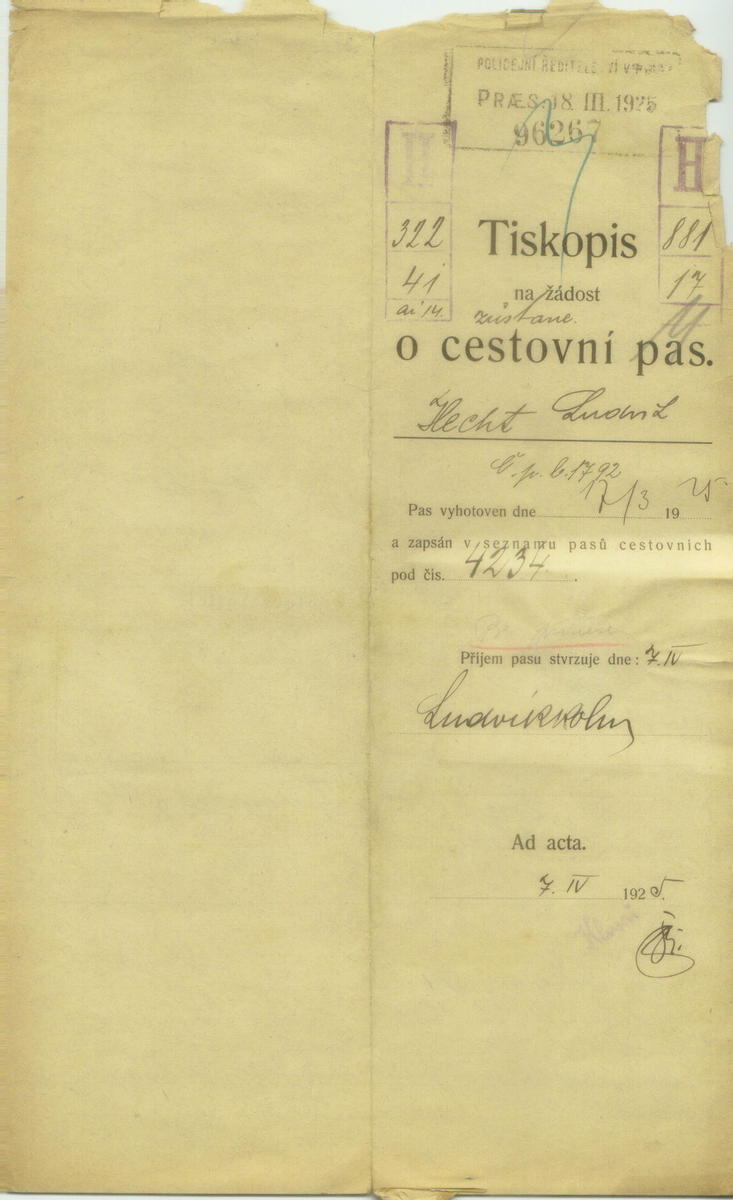 POLICEJNÍ ŘEDITELSTVÍ V PRAZE
PRÆS. 18. III. 1925
96267
H
H
322
881
Tiskopis
41
17
na žádost
ai 14.
zůstane.
o cestovní pas.
Hecht Ludvík
Č. p. b. 1792
Pas vyhotoven dne 17/3 1925
a zapsán v seznamu pasů cestovních
pod čís. 4234.
Příjem pasu stvrzuje dne: 7. IV
Ad acta.
7. IV 1925.